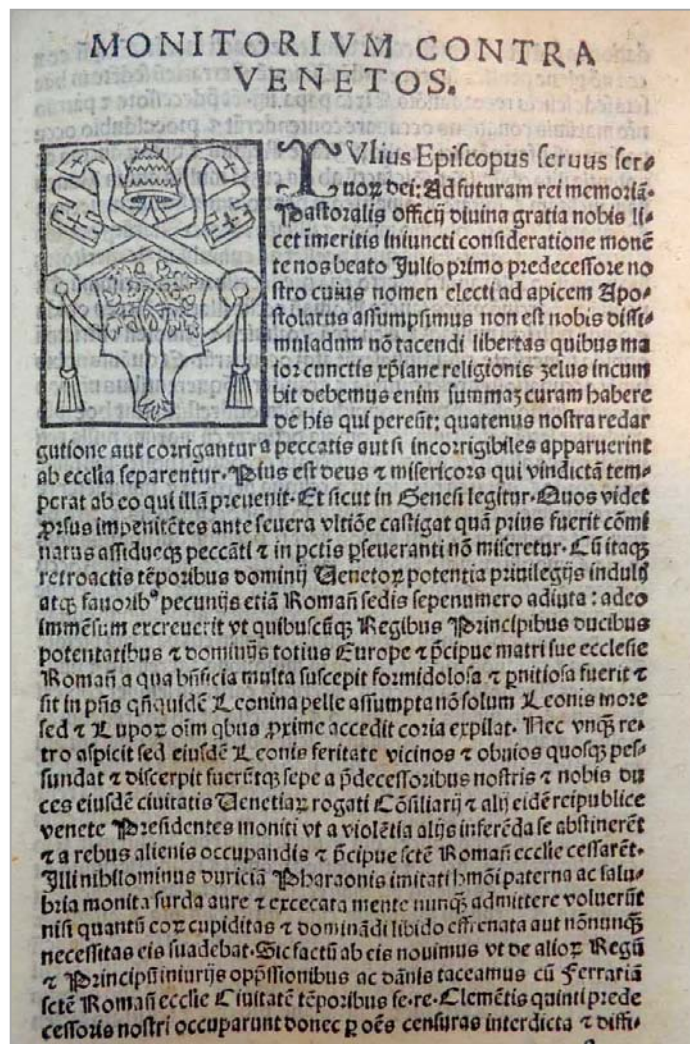 MONITORIVM CONTRA
VENETOS.
IVlius Episcopus seruus ser⸗
uoꝝ dei: Ad futuram rei memoriã.
Pastoralis officij diuina gratia nobis li⸗
cet ĩmeritis iniuncti consideratione monẽ
te nos beato Julio primo predecessore no
stro cuius nomen electi ad apicem Apo⸗
stolatus assumpsimus non est nobis dissi⸗
muladum nõ tacendi libertas quibus ma
ior cunctis xp̃iane religionis zelus incum
bit debemus enim summaꝫ curam habere
de his qui pereũt: quatenus nostra redar
gutione aut corrigantur a peccatis aut si incorrigibiles apparuerint
ab ecclia separentur. Pius est deus ⁊ misericors qui vindictã tem⸗
perat ab eo qui illã preuenit. Et sicut in Genesi legitur. Quos videt
ꝓrsus impenitẽtes ante seuera vltiõe castigat quã prius fuerit cõmi
natus assidueqꝫ peccãti ⁊ in pctis ꝑseueranti nõ miseretur. Cũ itaqꝫ
retroactis tẽporibus dominij Venetoꝝ potentia priuilegijs indult
atqꝫ fauorib⁹ pecunijs etiã Romañ sedis sepenumero adiuta: adeo
immẽsum excreuerit vt quibuscũqꝫ Regibus Principibus ducibus
potentatibus ⁊ dominijs totius Europe ⁊ p̃cipue matri sue ecclesie
Romañ a qua bñficia multa suscepit formidolosa ⁊ ꝑnitiosa fuerit ⁊
sit in pñs qñquidẽ Leonina pelle assumpta nõ solum Leonis more
sed ⁊ Lupoꝝ oĩm qbus ꝓxime accedit coria expilat. Nec vnqꝫ re⸗
tro aspicit sed eiusdẽ Leonis feritate vicinos ⁊ obuios quosqꝫ pes⸗
sundat ⁊ discerpit fuerũtqꝫ sepe a p̃decessoribus nostris ⁊ nobis du
ces eiusdẽ ciuitatis Venetiaꝝ rogati Cõsiliarij ⁊ alij eidẽ reipublice
venete Presidentes moniti vt a violẽtia alijs inferẽda se abstinerẽt
⁊ a rebus alienis occupandis ⁊ p̃cipue sctẽ Romañ ecclie cessarẽt.
Illi nihilominus duriciã Pharaonis imitati hmõi paterna ac salu⸗
bria monita surda aure ⁊ excecata mente nunqꝫ admittere voluerũt
nisi quantũ eoꝝ cupiditas ⁊ dominãdi libido effrenata aut nõnunqꝫ
necessitas eis suadebat. Sic factũ ab eis nouimus vt de alioꝝ Regũ
⁊ Principũ iniurijs opp̃ssionibus ac dãnis taceamus cũ Ferrariã
sctẽ Romañ ecclie Ciuitatẽ tẽporibus fe.re. Clemẽtis quinti prede
cessoris nostri occuparunt donec ꝑ oẽs censuras interdicta ⁊ diffi⸗